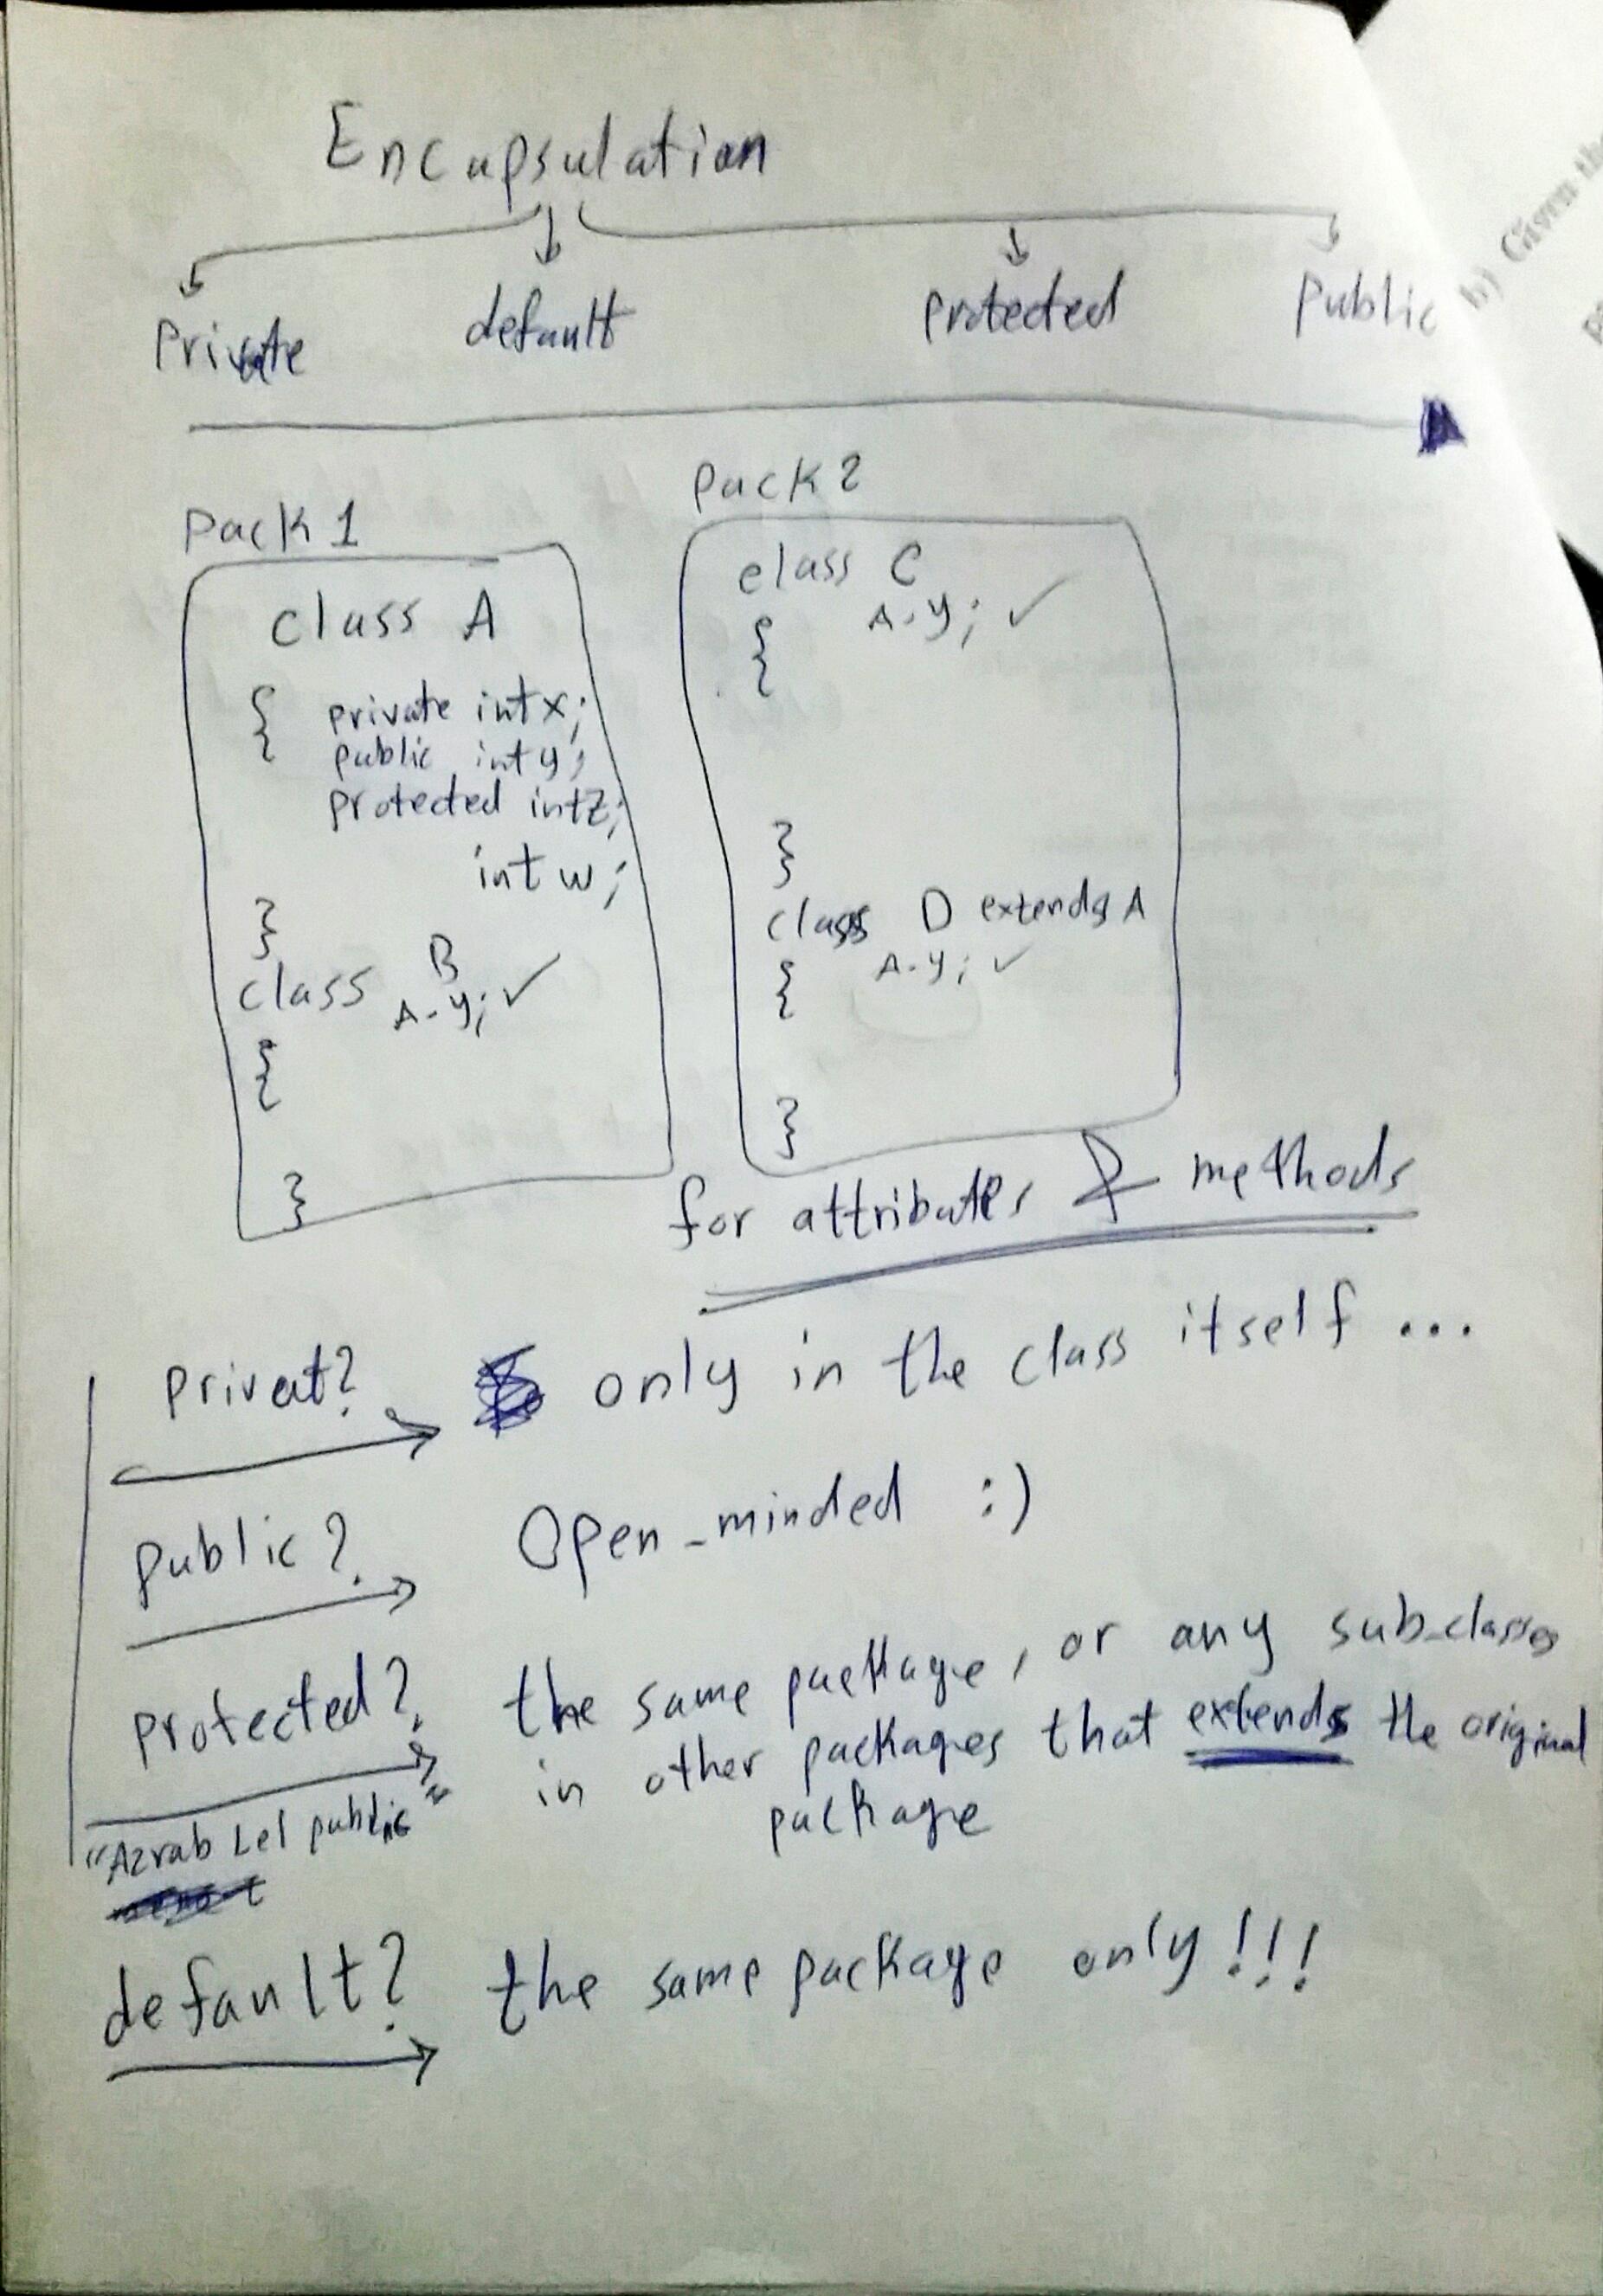 Encapsulation
Private default Protected Public
Pack 1
class A
{ private int x;
public int y;
protected int z;
int w;
}
class B
A.y; ✓
{
}
Pack 2
class C
A.y; ✓
{
}
class D extends A
A.y; ✓
{
}
for attributes & methods
Privat? only in the class itself ...
Public? Open_minded :)
Protected? the same package, or any sub_classes
in other packages that extends the original
package
"Azrab Lel public"
default? the same package only!!!
b) Given the